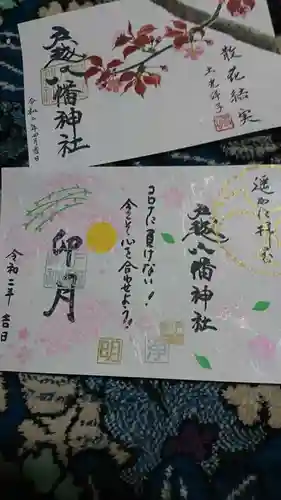 散花結実
玉光祥子
五越八幡神社
令和二年卯月吉日
遥かに拝む
五越八幡神社
コロナに負けない!
今こそ心を合わせよう!!
卯の月
令和二年 吉日
浄
明